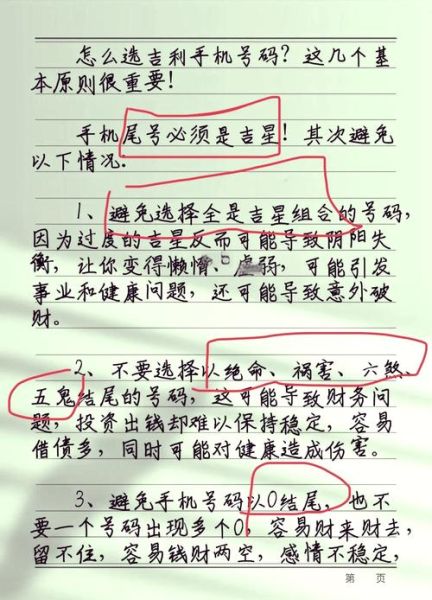 怎么选吉利手机号码？这几个基
本原则很重要！
手机尾号必须是吉星！其次避免
以下情况：
1、避免选择全是吉星组合的号码，
因为过度的吉星反而可能导致阴阳失
衡，让你变得懒惰、虚弱，可能引发
事业和健康问题，还可能导致意外破
财。
2、不要选择以绝命、祸害、六煞、
五鬼结尾的号码，这可能导致财务问
题，投资出钱却难以保持稳定，容易
借债多，同时可能对健康造成伤害。
3、避免手机号码以0结尾，也不
要一个号码出现多个0，容易财来财去，
留不住，容易钱财两空，感情不稳定，
第 页